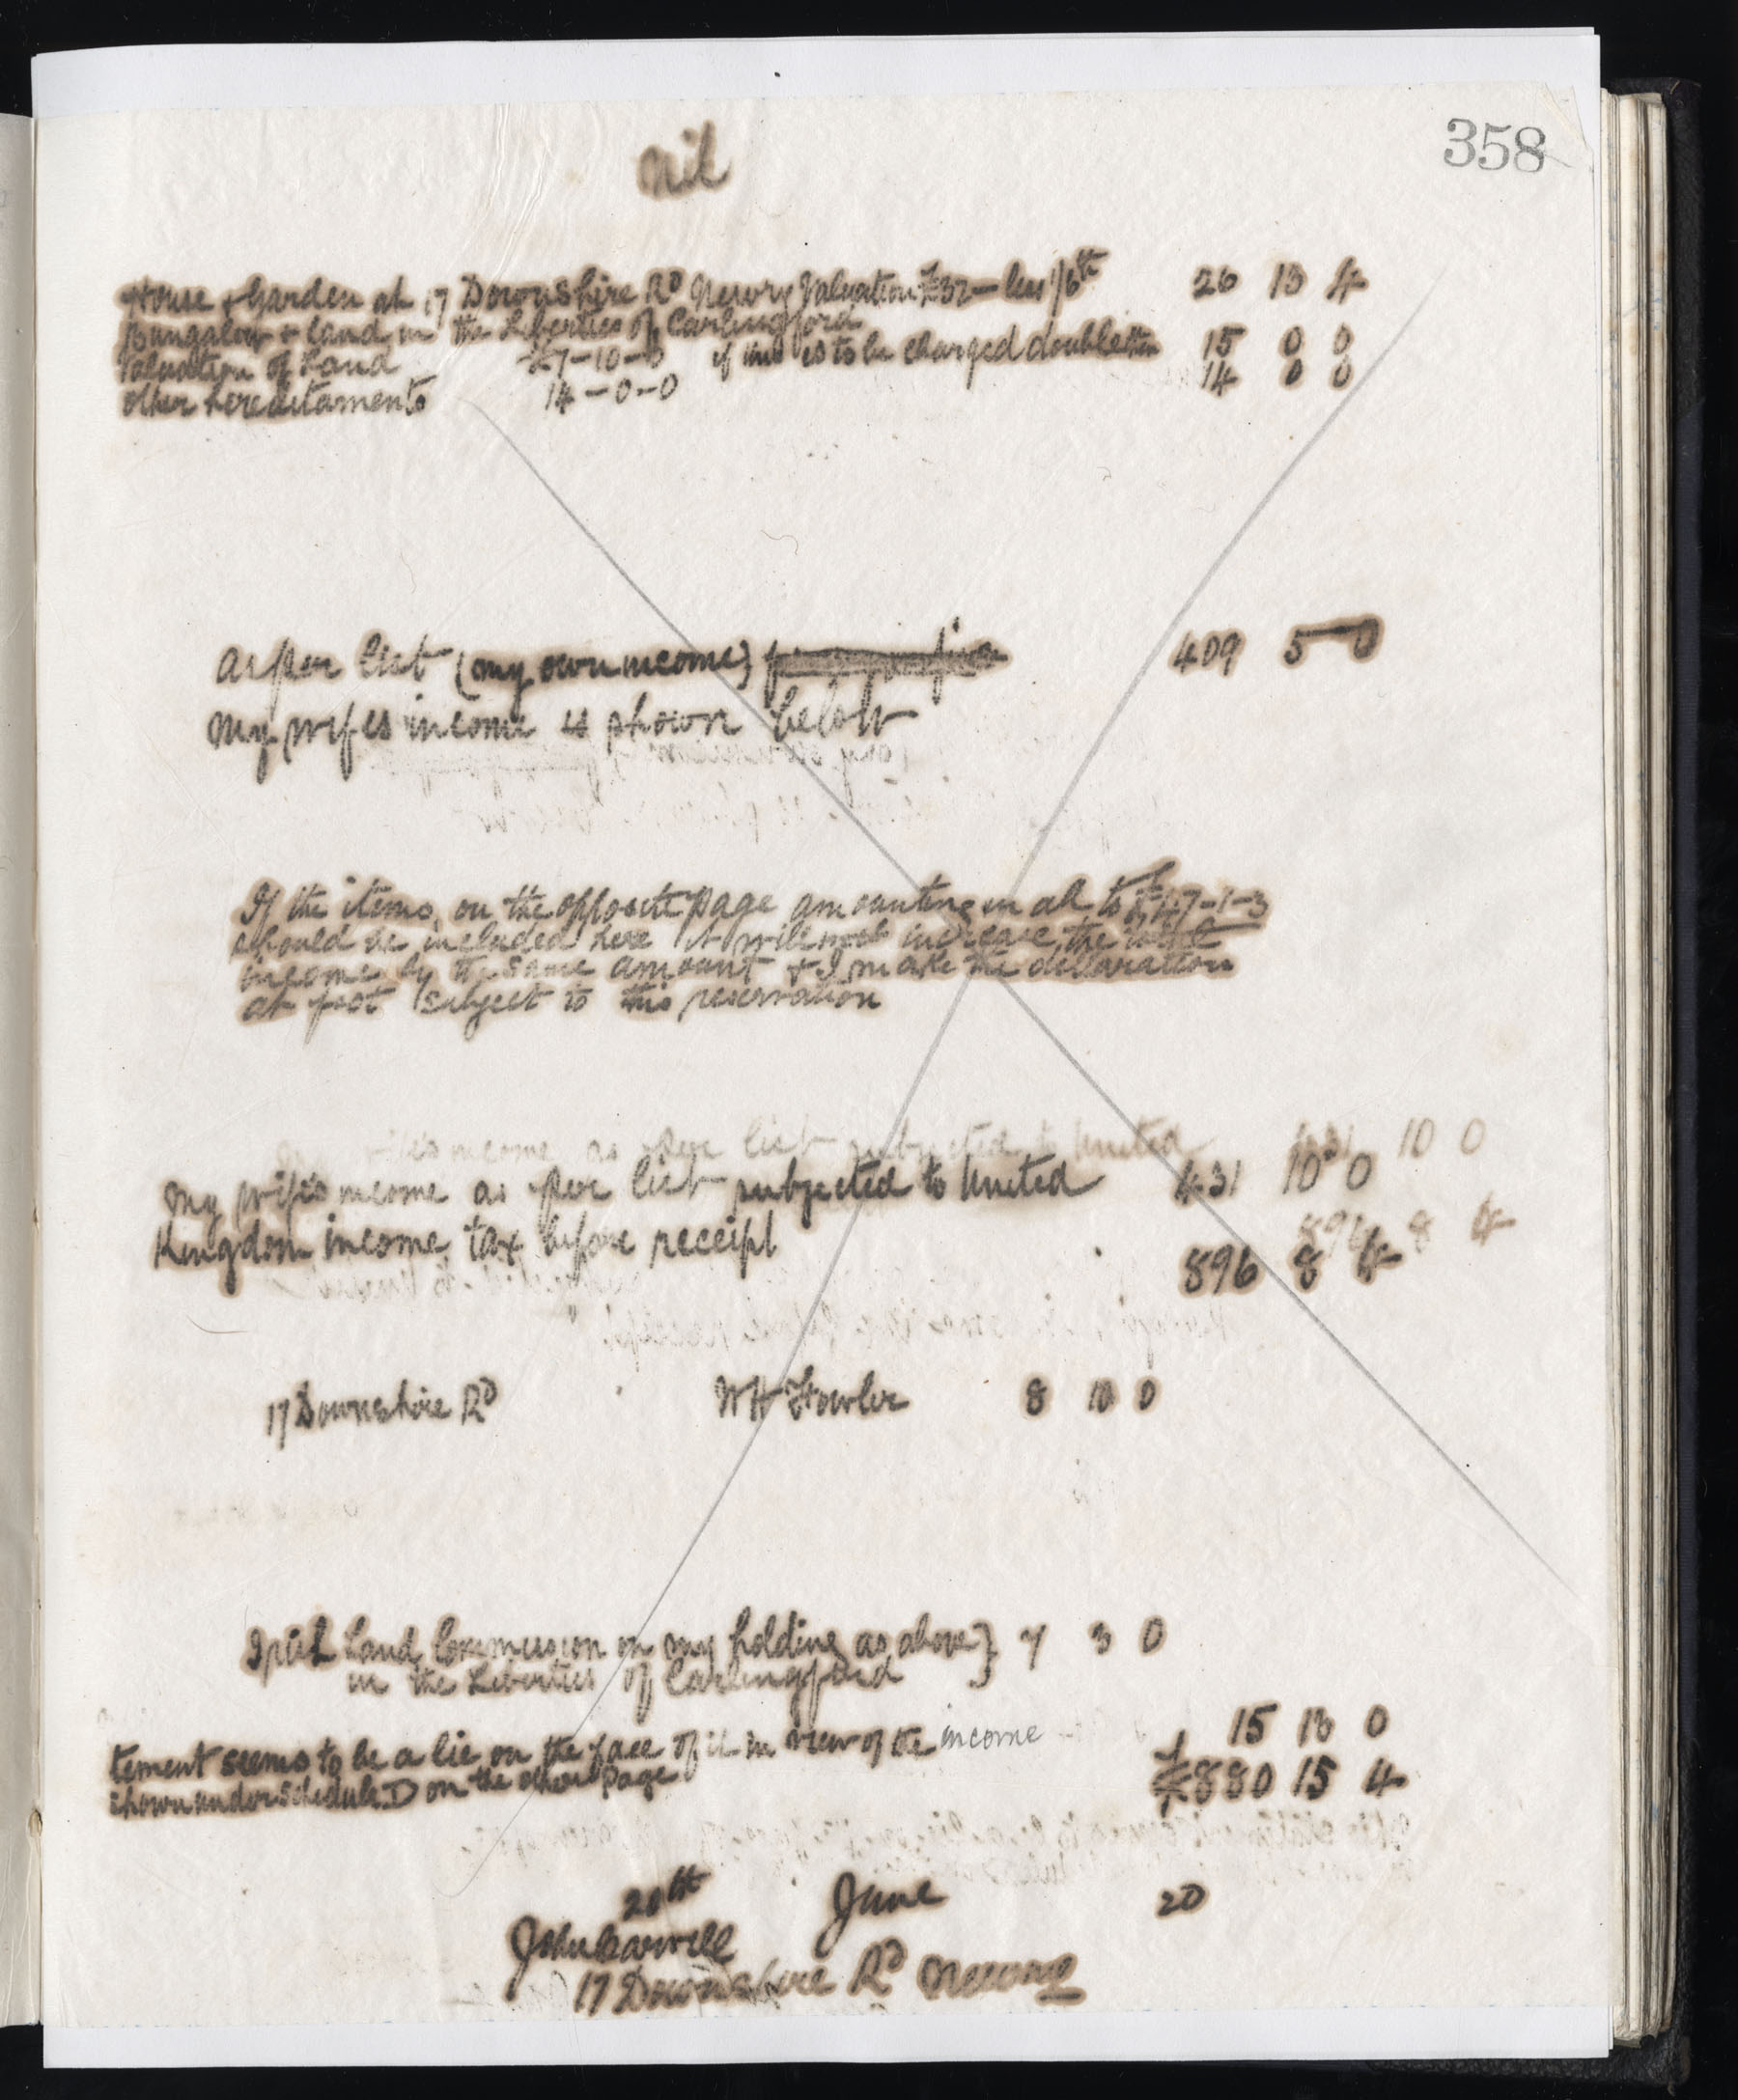 358
Nil
House & Garden at 17 Downshire Rd Newry Valuation £32 — less 1/6th 26 13 4
Bungalow & land in the Liberties of Carlingford
Valuation of Land £7-10-0 if this is to be charged double then 15 0 0
other hereditaments 14-0-0 14 0 0
As per list (my own income) 409 5 0
My wifes income is shown below
If the items on the opposite page amounting in all to £147-1-3
should be included here it will increase the total
income by the same amount & I make the declaration
at foot subject to this reservation
My wife's income as per list subjected to United 431 10 0
Kingdom income tax before receipt
896 8 4
17 Downshire Rd W H Fowler 8 10 0
Irish Land Commission on my holding as above} 7 3 0
in the Liberties of Carlingford
15 13 0
tement seems to be a lie on the face of it in view of the income
shown under Schedule D on the other page
£880 15 4
20th June 20
John Carvill
17 Downshire Rd Newry